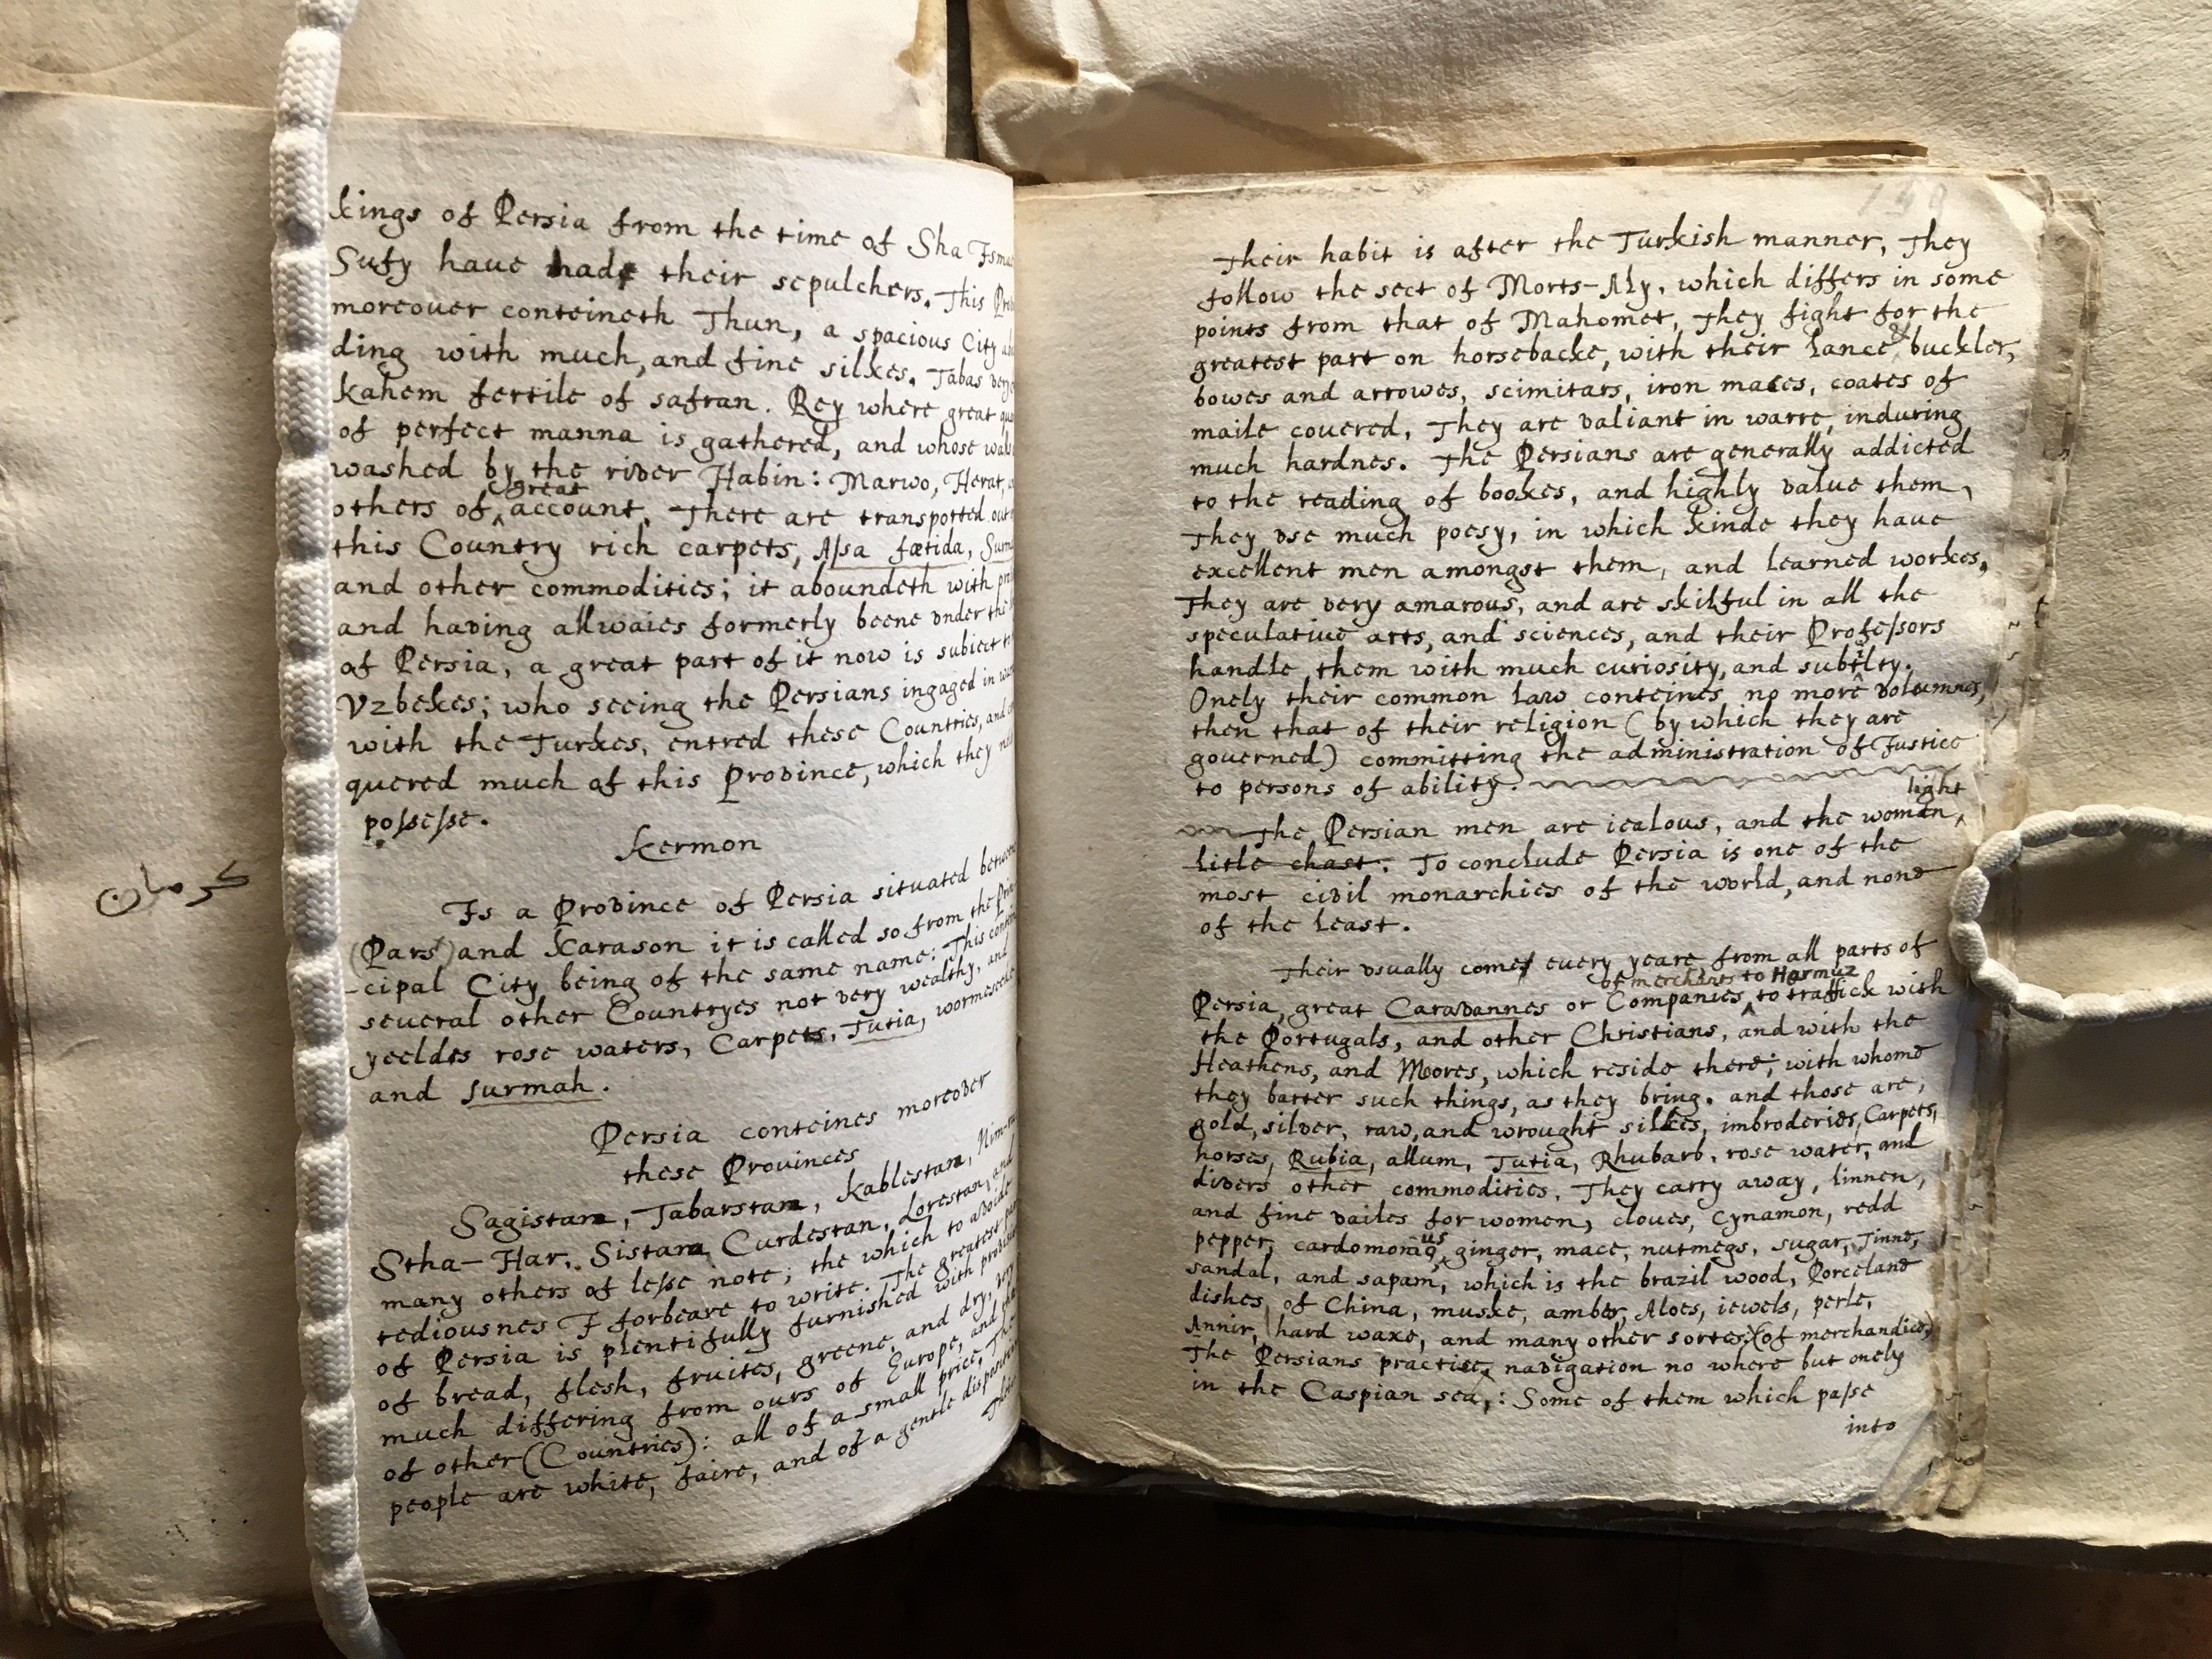 kings of Persia from the time of Sha
Sufy haue had their sepulchers. This
moreouer conteineth Thun, a spacious City
ding with much, and fine silkes. Tabas
kahem fertile of safran. Rey where great
of perfect manna is gathered, and whose
washed by the riber Habin: Marwo, Herat,
great
others of account. There are transported out
this Country rich carpets, Assa fætida,
and other commodities; it aboundeth with
and hauing allwaies formerly beene vnder the
of Persia, a great part of it now is subiect
Vzbekes; who seeing the Persians ingaged in
with the Turkes, entred these Countries, and
quered much of this Prouince, which they
possesse.
Kermon
كرمان
Is a Prouince of Persia situated
(Pars) and Karason it is called so from the
cipal City being of the same name: This
seueral other Countryes not very wealthy, and
yeeldes rose waters, Carpets, Tutia,
and surmah.
Persia conteines moreouer
these Prouinces
Sagistam, Tabarstam, Kablestam,
Stha-Har, Sistam Curdestan, Lorestan, and
many others of lesse note; the which to auoide
tediousnes I forbeare to write. The greatest
of Persia is plentifully furnished with
of bread, flesh, fruites, greene, and dry, very
much differing from ours of Europe, and
of other (Countries): all of a small price,
people are white, faire, and of a gentle
Their
Their habit is after the Turkish manner, They
follow the sect of Morts-Aly, which differs in some
points from that of Mahomet, They fight for the
greatest part on horsebacke, with their lance, & buckler,
bowes and arrowes, scimitars, iron maces, coates of
maile couered, They are valiant in warre, induring
much hardnes. The Persians are generally addicted
to the reading of bookes, and highly value them,
They vse much poesy, in which kinde they haue
excellent men amongst them, and learned workes,
They are very amarous, and are skilful in all the
speculatiue arts, and sciences, and their Professors
handle them with much curiosity, and subtilty.
Onely their common law conteines no more volumnes,
then that of their religion (by which they are
gouerned) committing the administration of Justice
to persons of ability.
light
The Persian men are iealous, and the woman,
litle chast. To conclude Persia is one of the
most ciuil monarchies of the world, and none
of the least.
Their vsually comes euery yeare from all parts of
of merchants to Harmuz
Persia, great Carauannes or Companies, to traffick with
the Portugals, and other Christians, and with the
Heathens, and Moores, which reside there; with whome
they barter such things, as they bring. and those are,
gold, siluer, raw, and wrought silkes, imbroderies, Carpets,
horses, Rubia, allum, Tutia, Rhubarb, rose water, and
diuers other commodities. They carry away, linnen,
and fine vailes for women, cloues, Cynamon, redd
pepper, ginger, mace, nutmegs, sugar, Tinne,
sandal, and sapam, which is the brazil wood, Porceland
dishes, of China, muske, amber, Aloes, iewels, perle,
Annir, hard waxe, and many other sortes (of merchandice)
The Persians practise nauigation no where but onely
in the Caspian sea,: Some of them which passe
into